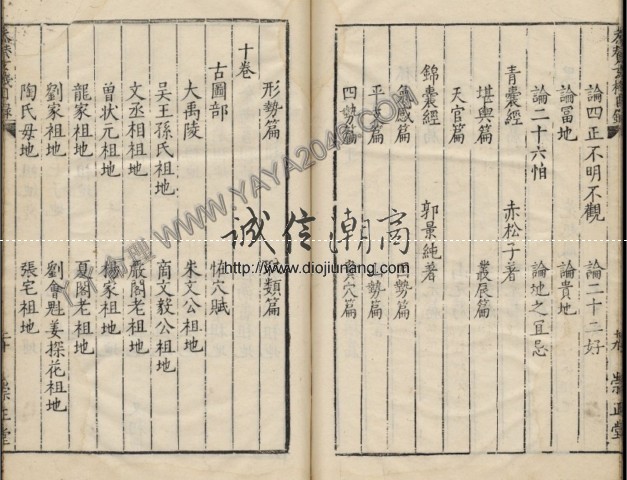 論四正不明不觀 論二十二好
論富地 論貴地
論二十六怕 論地之宜忌
青囊經 赤松子著
堪輿篇 叢辰篇
天官篇
錦囊經 郭景純著
感篇 勢篇
平篇 勢篇
四勢篇 穴篇
形勢篇 類篇
十卷
古圖部 恠穴賦
大禹陵 朱文公祖地
吳王孫氏祖地 商文毅公祖地
文丞相祖地 嚴閣老祖地
曾狀元祖地 楊家祖地
龍家祖地 夏閣老祖地
劉家祖地 劉會魁姜探花祖地
陶氏母地 張宅祖地
崇正堂
崇正堂
誠信潮商
http://www.diojiunang.com
WWW.YAYA2046.COM